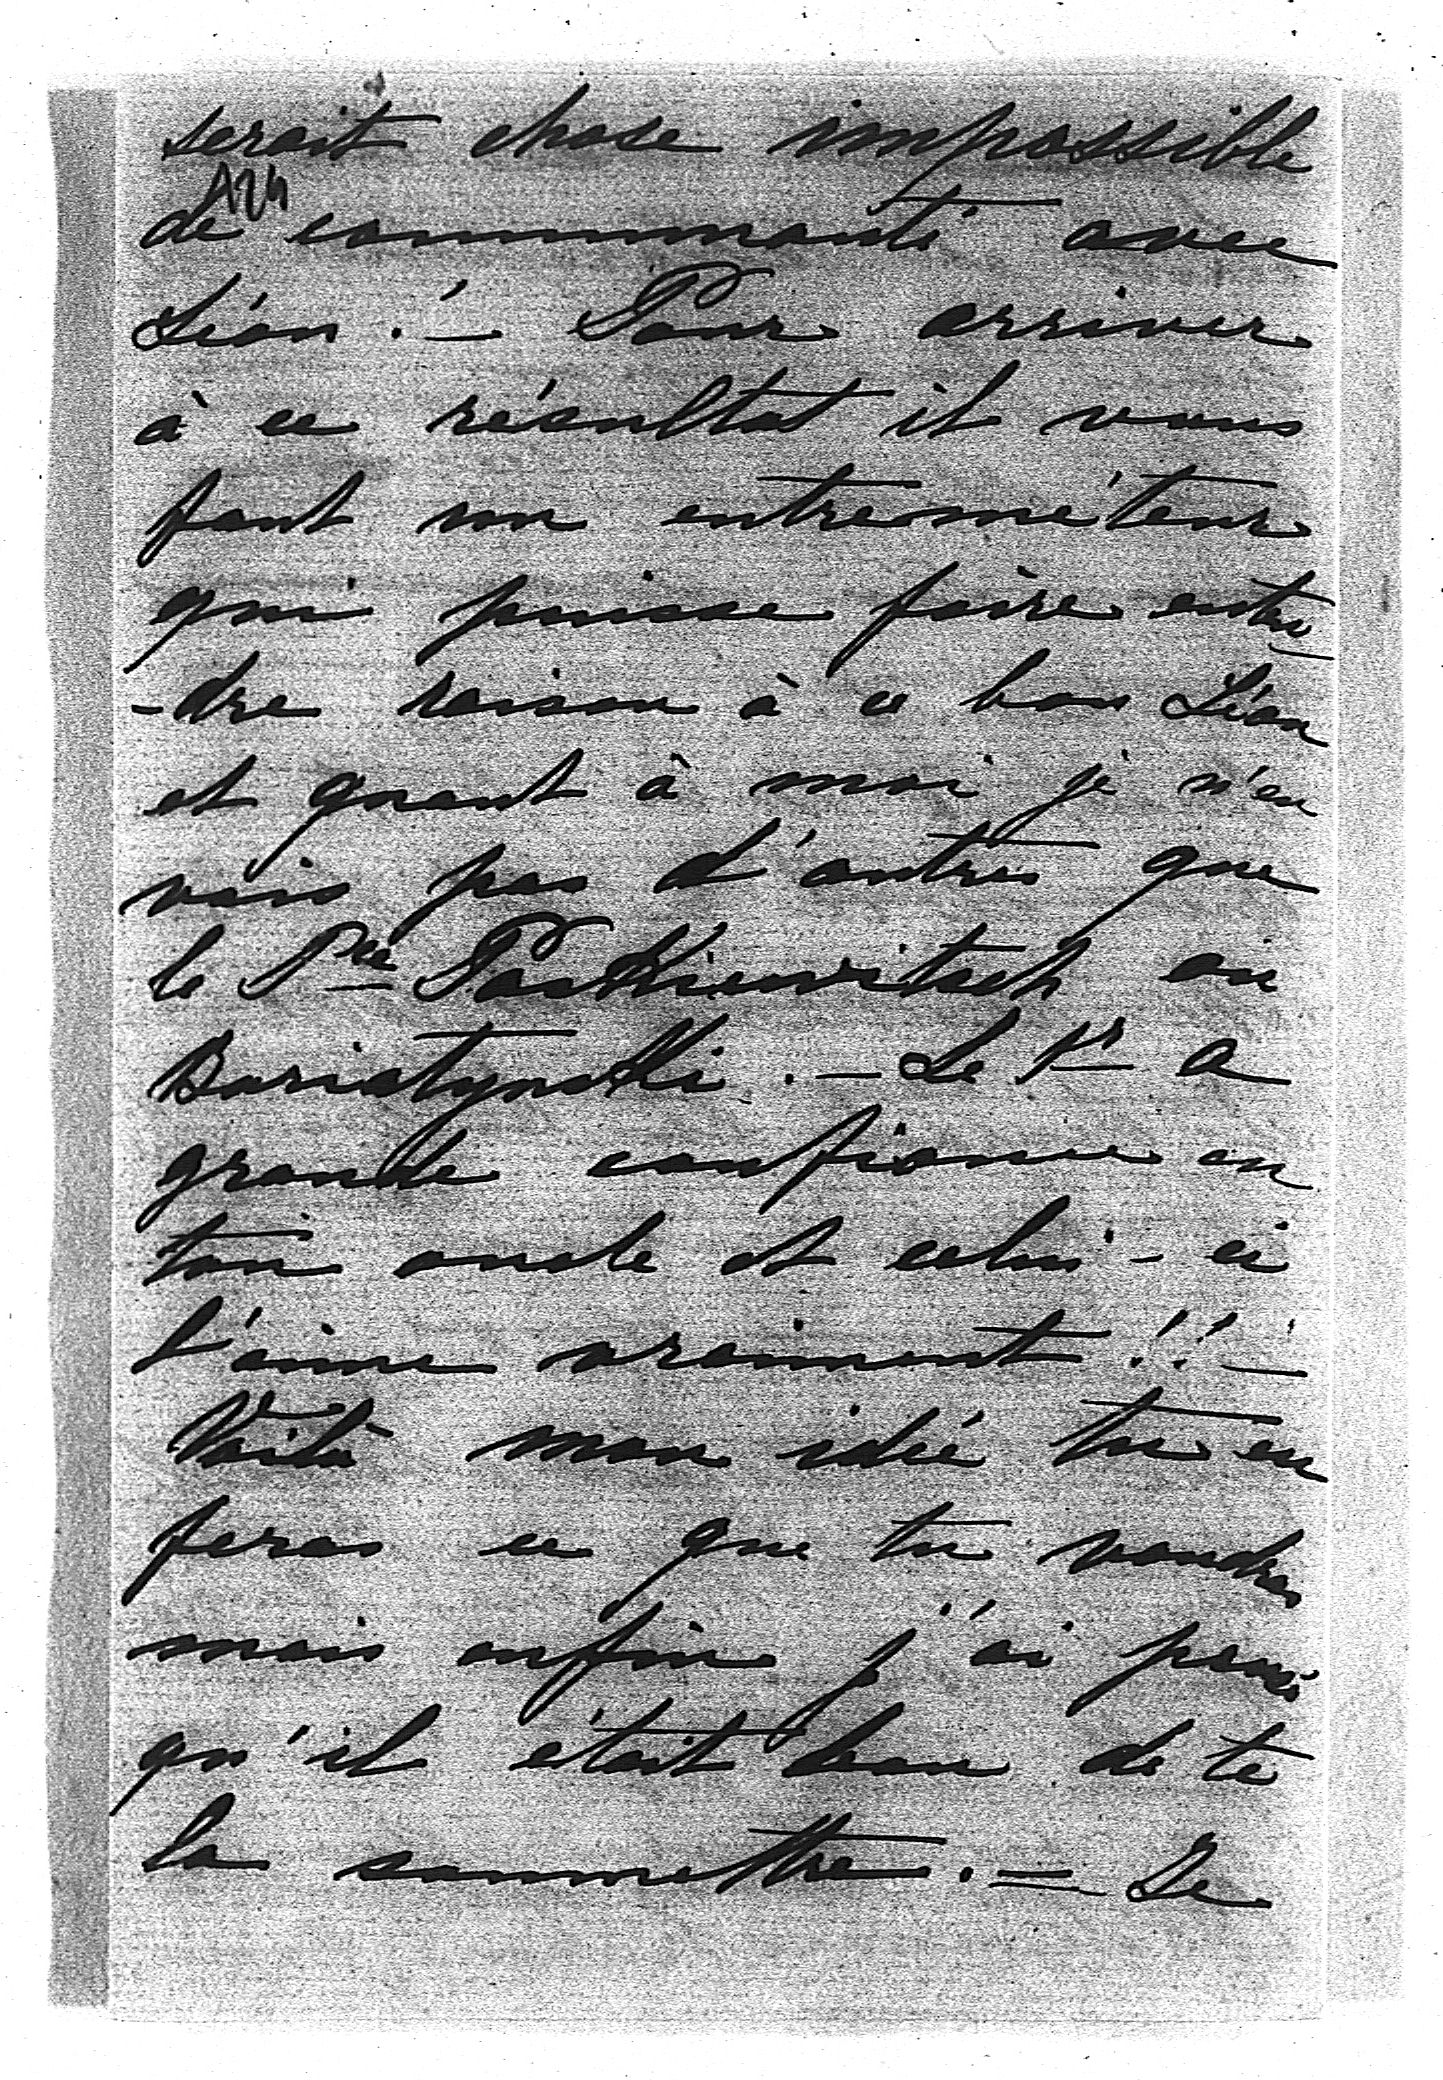 serait chose impossible
124
de communauté avec
Léon. — Pour arriver
à ce résultat il vous
faut un entreméteur
qui puisse faire enten
-dre raison à ce bon Léon
et quant à moi je n'en
vois pas d'autres que
le Pce Paskiewitsch ou
Bariatynski. — Le 1r a
grande confiance en
ton oncle et celui-ci
t'aime vraiment!! —
Voilà mon idée tu en
feras ce que tu voudras
mais enfin j'ai pensé
qu'il était bon de te
la soumettre. — Je